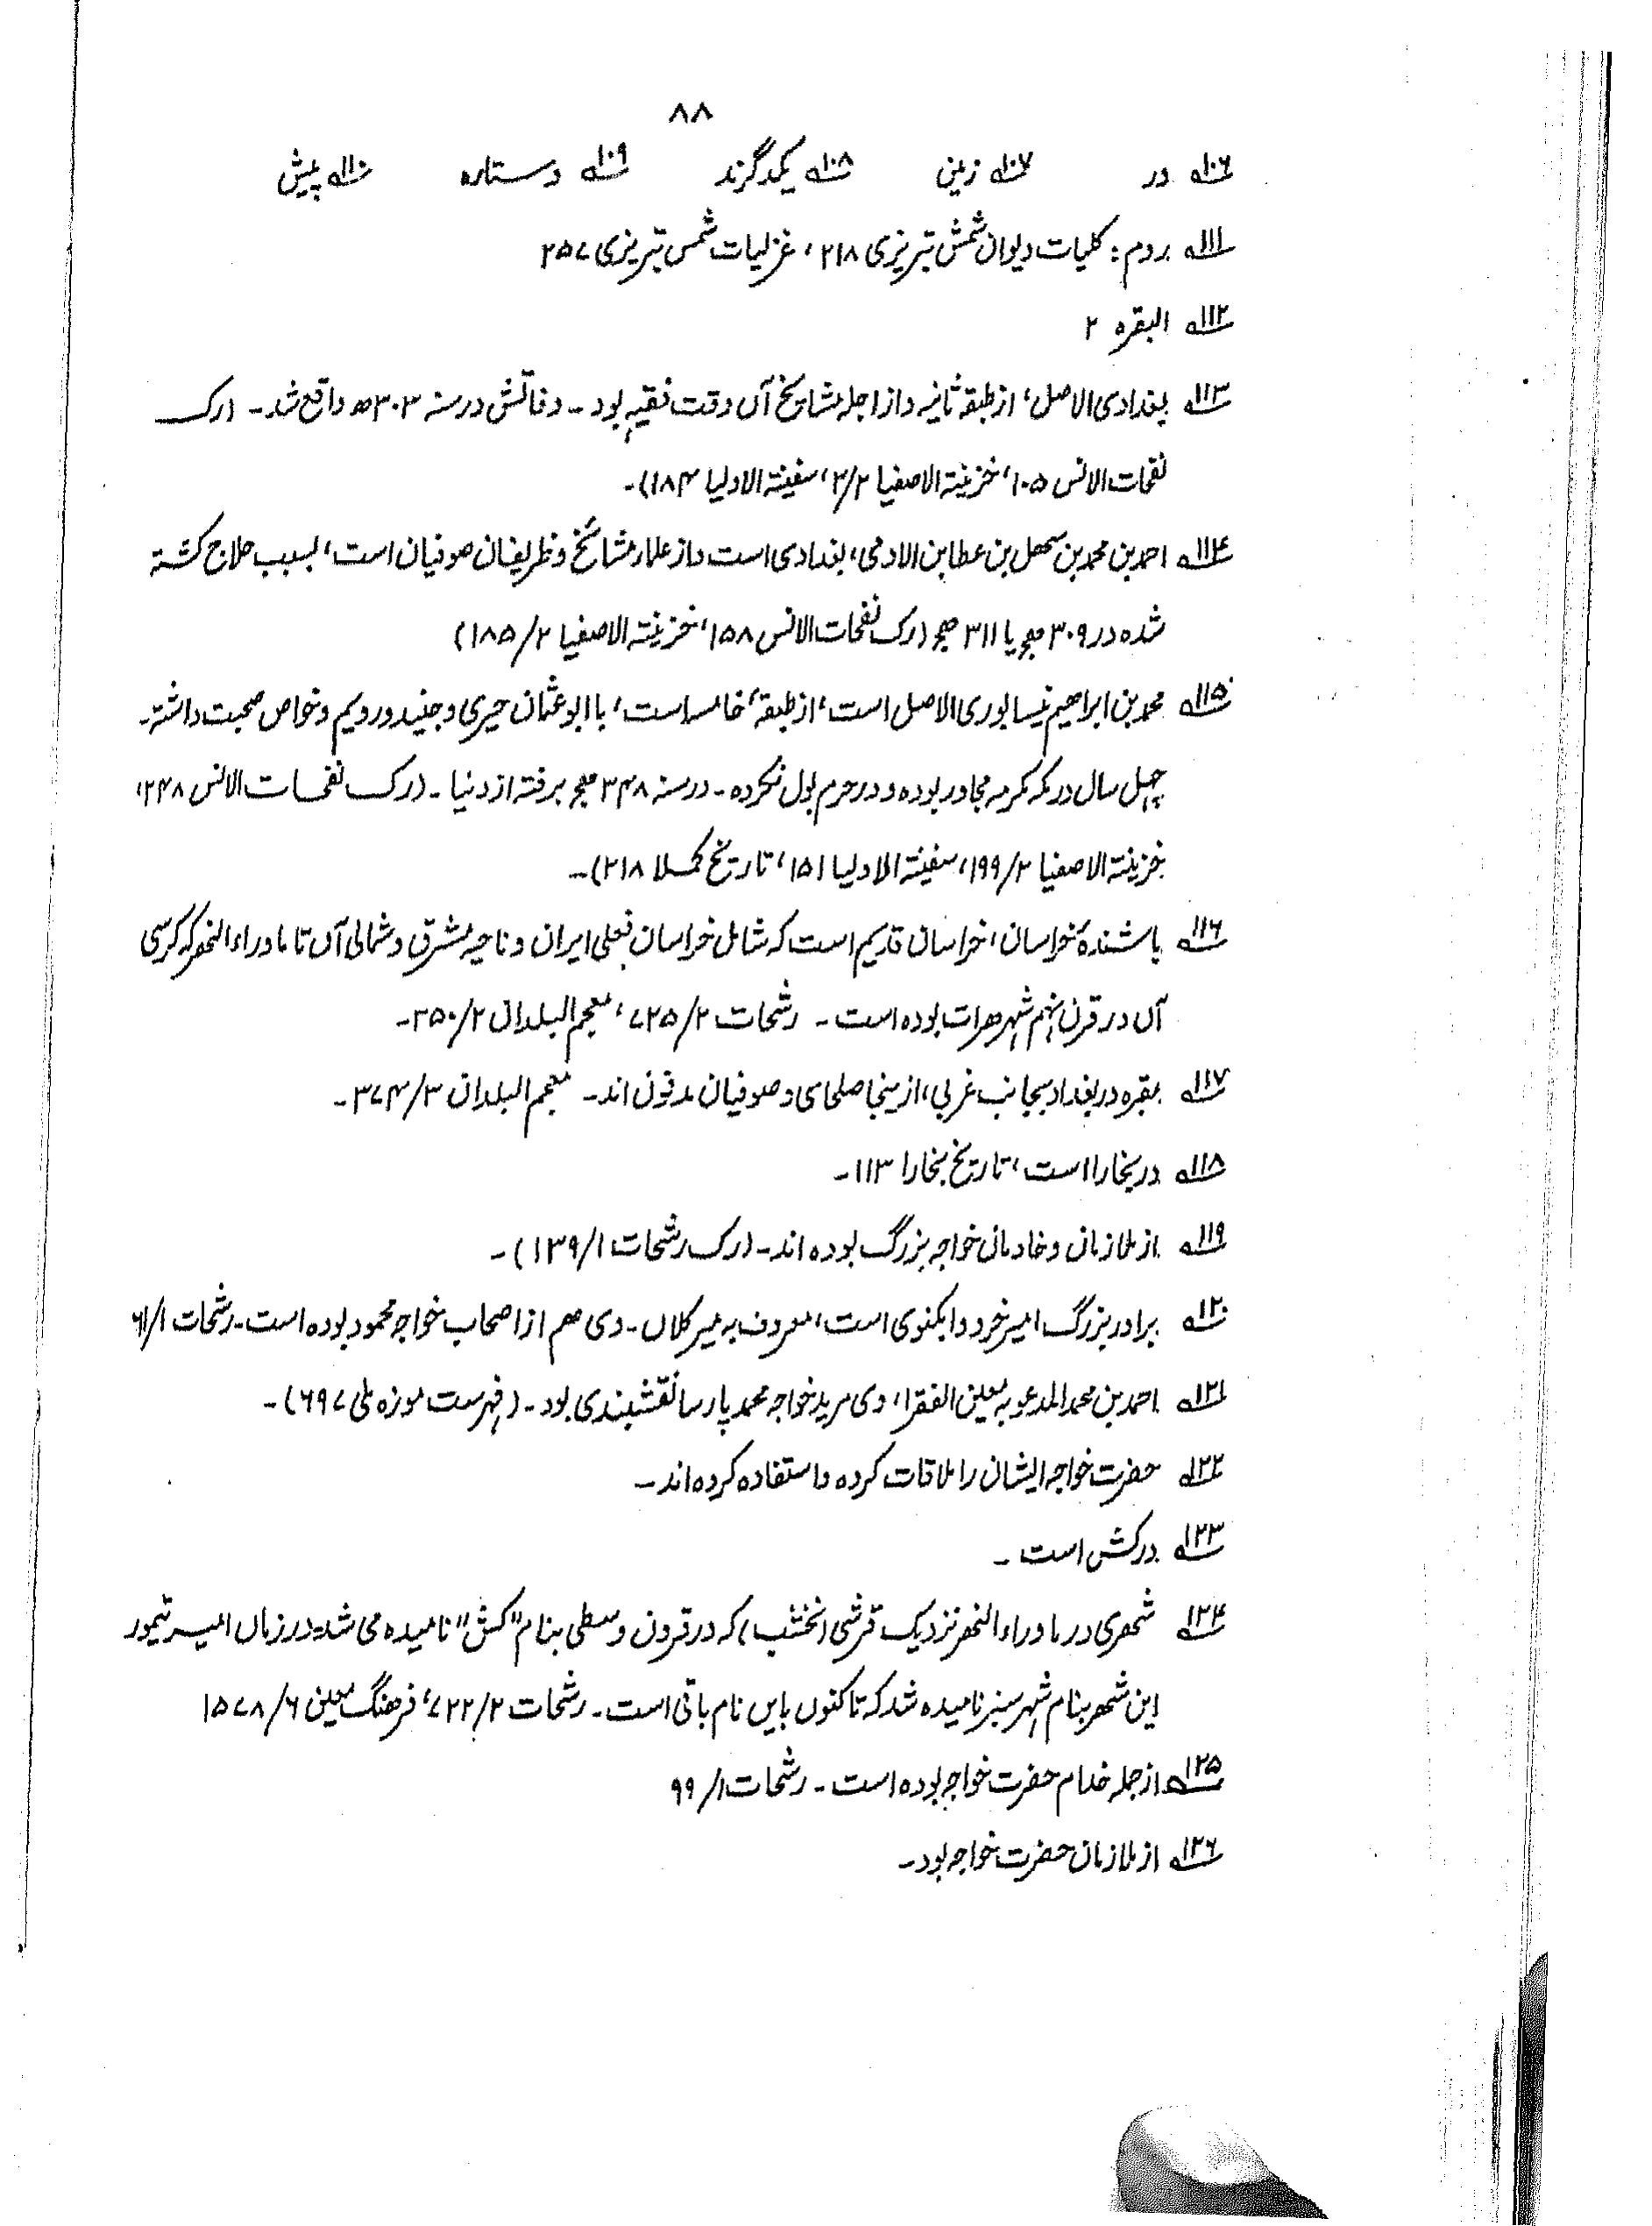 ۸۸
۱۰۶ در ۱۰۷ زین ۱۰۸ یکدگرند ۱۰۹ دستاره ۱۱۰ پیش
۱۱۱ بردم: کلیات دیوان شمش تبریزی ۲۱۸، غزلیات شمس تبریزی ۲۵۷
۱۱۲ البقره ۲
۱۱۳ بغدادی الاصل، از طبقه ثانیه و از اجله مشایخ آں وقت فقیه بود۔ وفاتش در سنه ۳۰۳ھ واقع شد۔ (رک
نفحات الانس ۱۰۵، خزینۃ الاصفیا ۳/۲، سفینۃ الاولیا ۱۸۴)۔
۱۱۴ احمد بن محمد بن سهل بن عطا بن الادمی، بغدادی است و از علماء مشائخ و ظریفان صوفیان است، بسبب حلاج کشتہ
شده در ۳۰۹ هج یا ۳۱۱ هج (رک نفحات الانس ۱۵۸، خزینتہ الاصفیا ۱۸۵/۲)
۱۱۵ محمد بن ابراهیم نیسابوری الاصل است، از طبقۂ خامسه است، با ابو عثمان حیری و جنید و رویم و خواص صحبت داشتہ۔
چهل سال در مکه مکرمه مجاور بوده و در حرم بول نکرده۔ در سنه ۳۴۸ هج برفته از دنیا۔ (رک نفحات الانس ۲۴۸،
خزینتہ الاصفیا ۱۹۹/۲، سفینتہ الاولیا ۱۵۱، تاریخ کملا ۲۱۸)۔
۱۱۶ باشندۂ خراسان، خراسان قدیم است که شامل خراسان فعلی ایران و ناحیه مشرق و شمالی آں تا ماوراء النهر که کرسی
آں در قرن نهم شهر هرات بوده است۔ رشحات ۷۲۵/۲، معجم البلدان ۳۵۰/۲۔
۱۱۷ مقبره در بغداد بجانب غربی، از ینجا صلحای و صوفیان مدفون اند۔ معجم البلدان ۳۷۴/۳۔
۱۱۸ در بخارا است، تاریخ بخارا ۱۱۳۔
۱۱۹ از ملازمان و خادمان خواجه بزرگ بوده اند۔ (رک رشحات ۱۳۹/۱)۔
۱۲۰ برادر بزرگ امیر خرد وابکنوی است، معروف به میر کلاں۔ وی هم از اصحاب خواجه محمود بوده است۔ رشحات ۶۱/۱
۱۲۱ احمد بن محمد المدعو به معین الفقراء، وی مرید خواجه محمد پارسا نقشبندی بود۔ (فهرست موزه ملی ۶۹۷)۔
۱۲۲ حضرت خواجه ایشان را ملاقات کرده و استفاده کرده اند۔
۱۲۳ در کش است۔
۱۲۴ شهری در ماوراء النهر نزدیک قرشی (نخشب) که در قرون وسطی بنام "کش" نامیده می شد۔ در زمان امیر تیمور
این شهر بنام شهر سبز نامیده شد که تا کنوں بایں نام باقی است۔ رشحات ۷۲۲/۲، فرهنگ معین ۱۵۷۸/۶
۱۲۵ از جمله خدام حضرت خواجه بوده است۔ رشحات ۹۹/۱
۱۲۶ از ملازمان حضرت خواجه بود۔